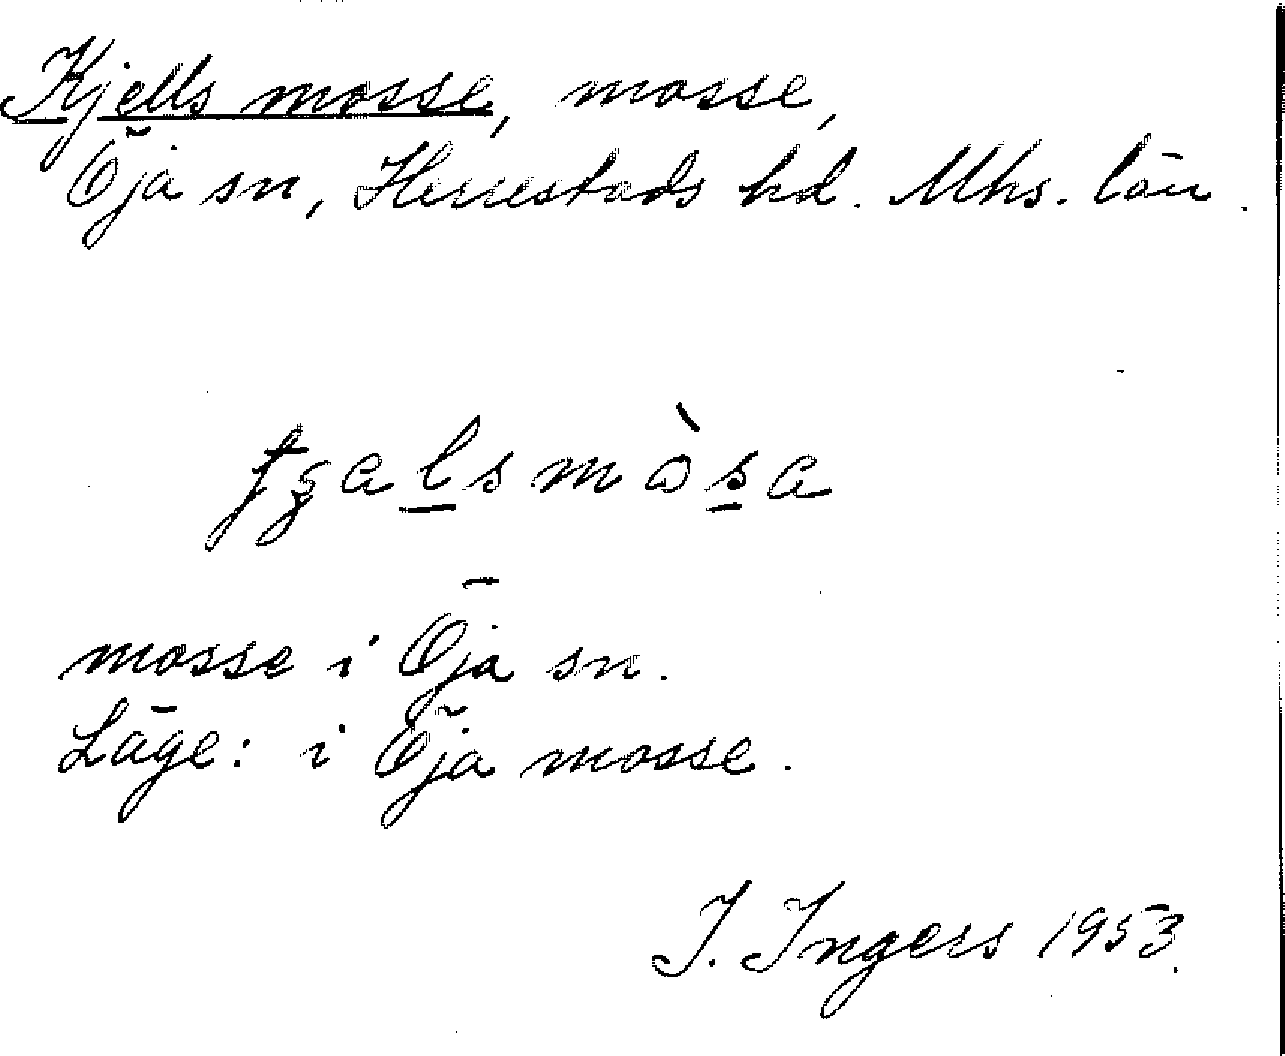 Kjells mosse, mosse,
Öja sn, Herrestads hd. Mhs. län.
ʈʂalsmòsa
mosse i Öja sn.
Läge: i Öja mosse.
I. Ingers 1953.